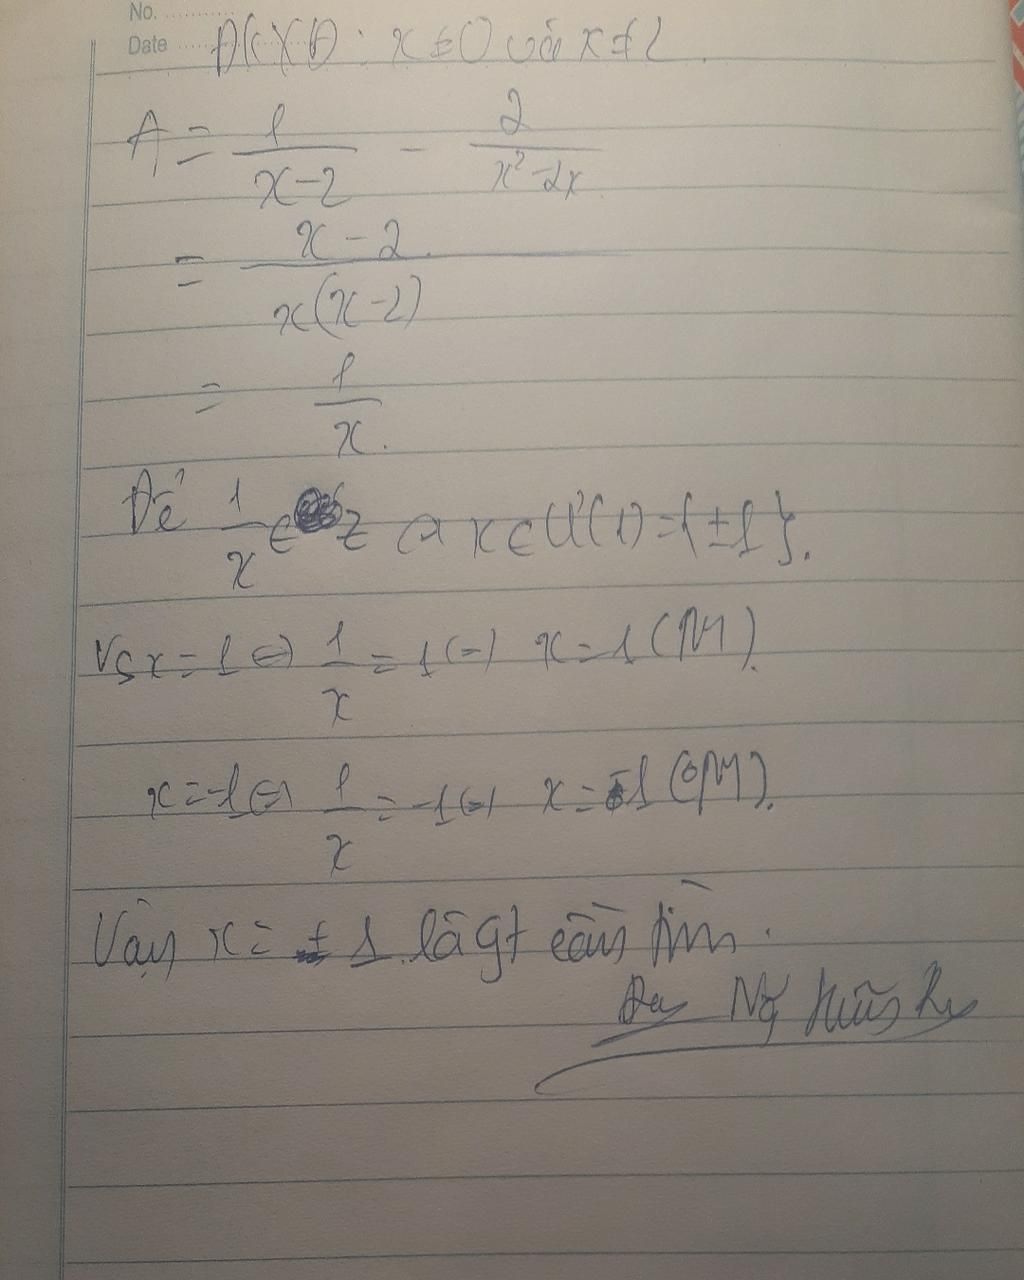 No. ............
Date ............ ĐKXĐ : x ≠ 0 và x ≠ 2.
A = 1/(x-2) - 2/(x²-2x)
= (x-2)/(x(x-2))
= 1/x.
Để 1/x ∈ Z (=) x ∈ Ư(1) = {±1}.
Vs x = 1 (=) 1/x = 1 (=) x = 1 (TM).
x = -1 (=) 1/x = -1 (=) x = -1 (TM).
Vậy x = ± 1 là gt cần tìm.